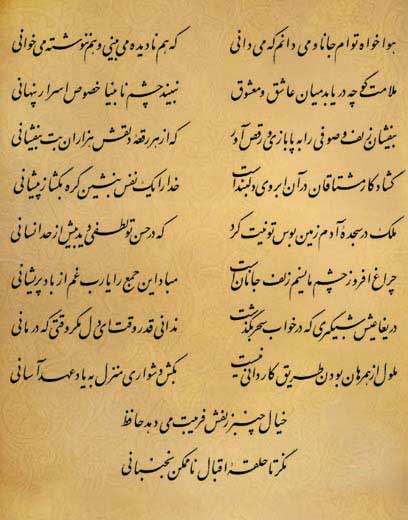 هواخواه توام جانا و می دانم که می دانی که هم نادیده می بینی و هم ننوشته می خوانی
ملامت گو چه دریابد میان عاشق و معشوق نبیند چشم نابینا خصوص اسرار پنهانی
بیفشان زلف و صوفی را به پابازی و رقص آور که از هر رقعه دلقش هزاران بت بیفشانی
گشاد کار مشتاقان در آن ابروی دلبند است خدا را یک نفس بنشین گره بگشا ز پیشانی
ملک در سجده آدم زمین بوس تو نیت کرد که در حسن تو لطفی دید بیش از حد انسانی
چراغ افروز چشم ما نسیم زلف جانان است مباد این جمع را یارب غم از باد پریشانی
دریغا عیش شبگیری که در خواب سحر بگذشت ندانی قدر وقت ای دل مگر وقتی که درمانی
ملول از همرهان بودن طریق کاردانی نیست بکش دشواری منزل به یاد عهد آسانی
خیال چنبر زلفش فریبت می دهد حافظ
نگر تا حلقه اقبال ناممکن نجنبانی